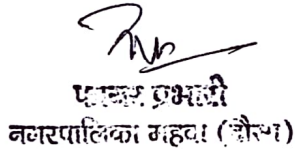 फायर प्रभारी
नगरपालिका महवा (दौसा)